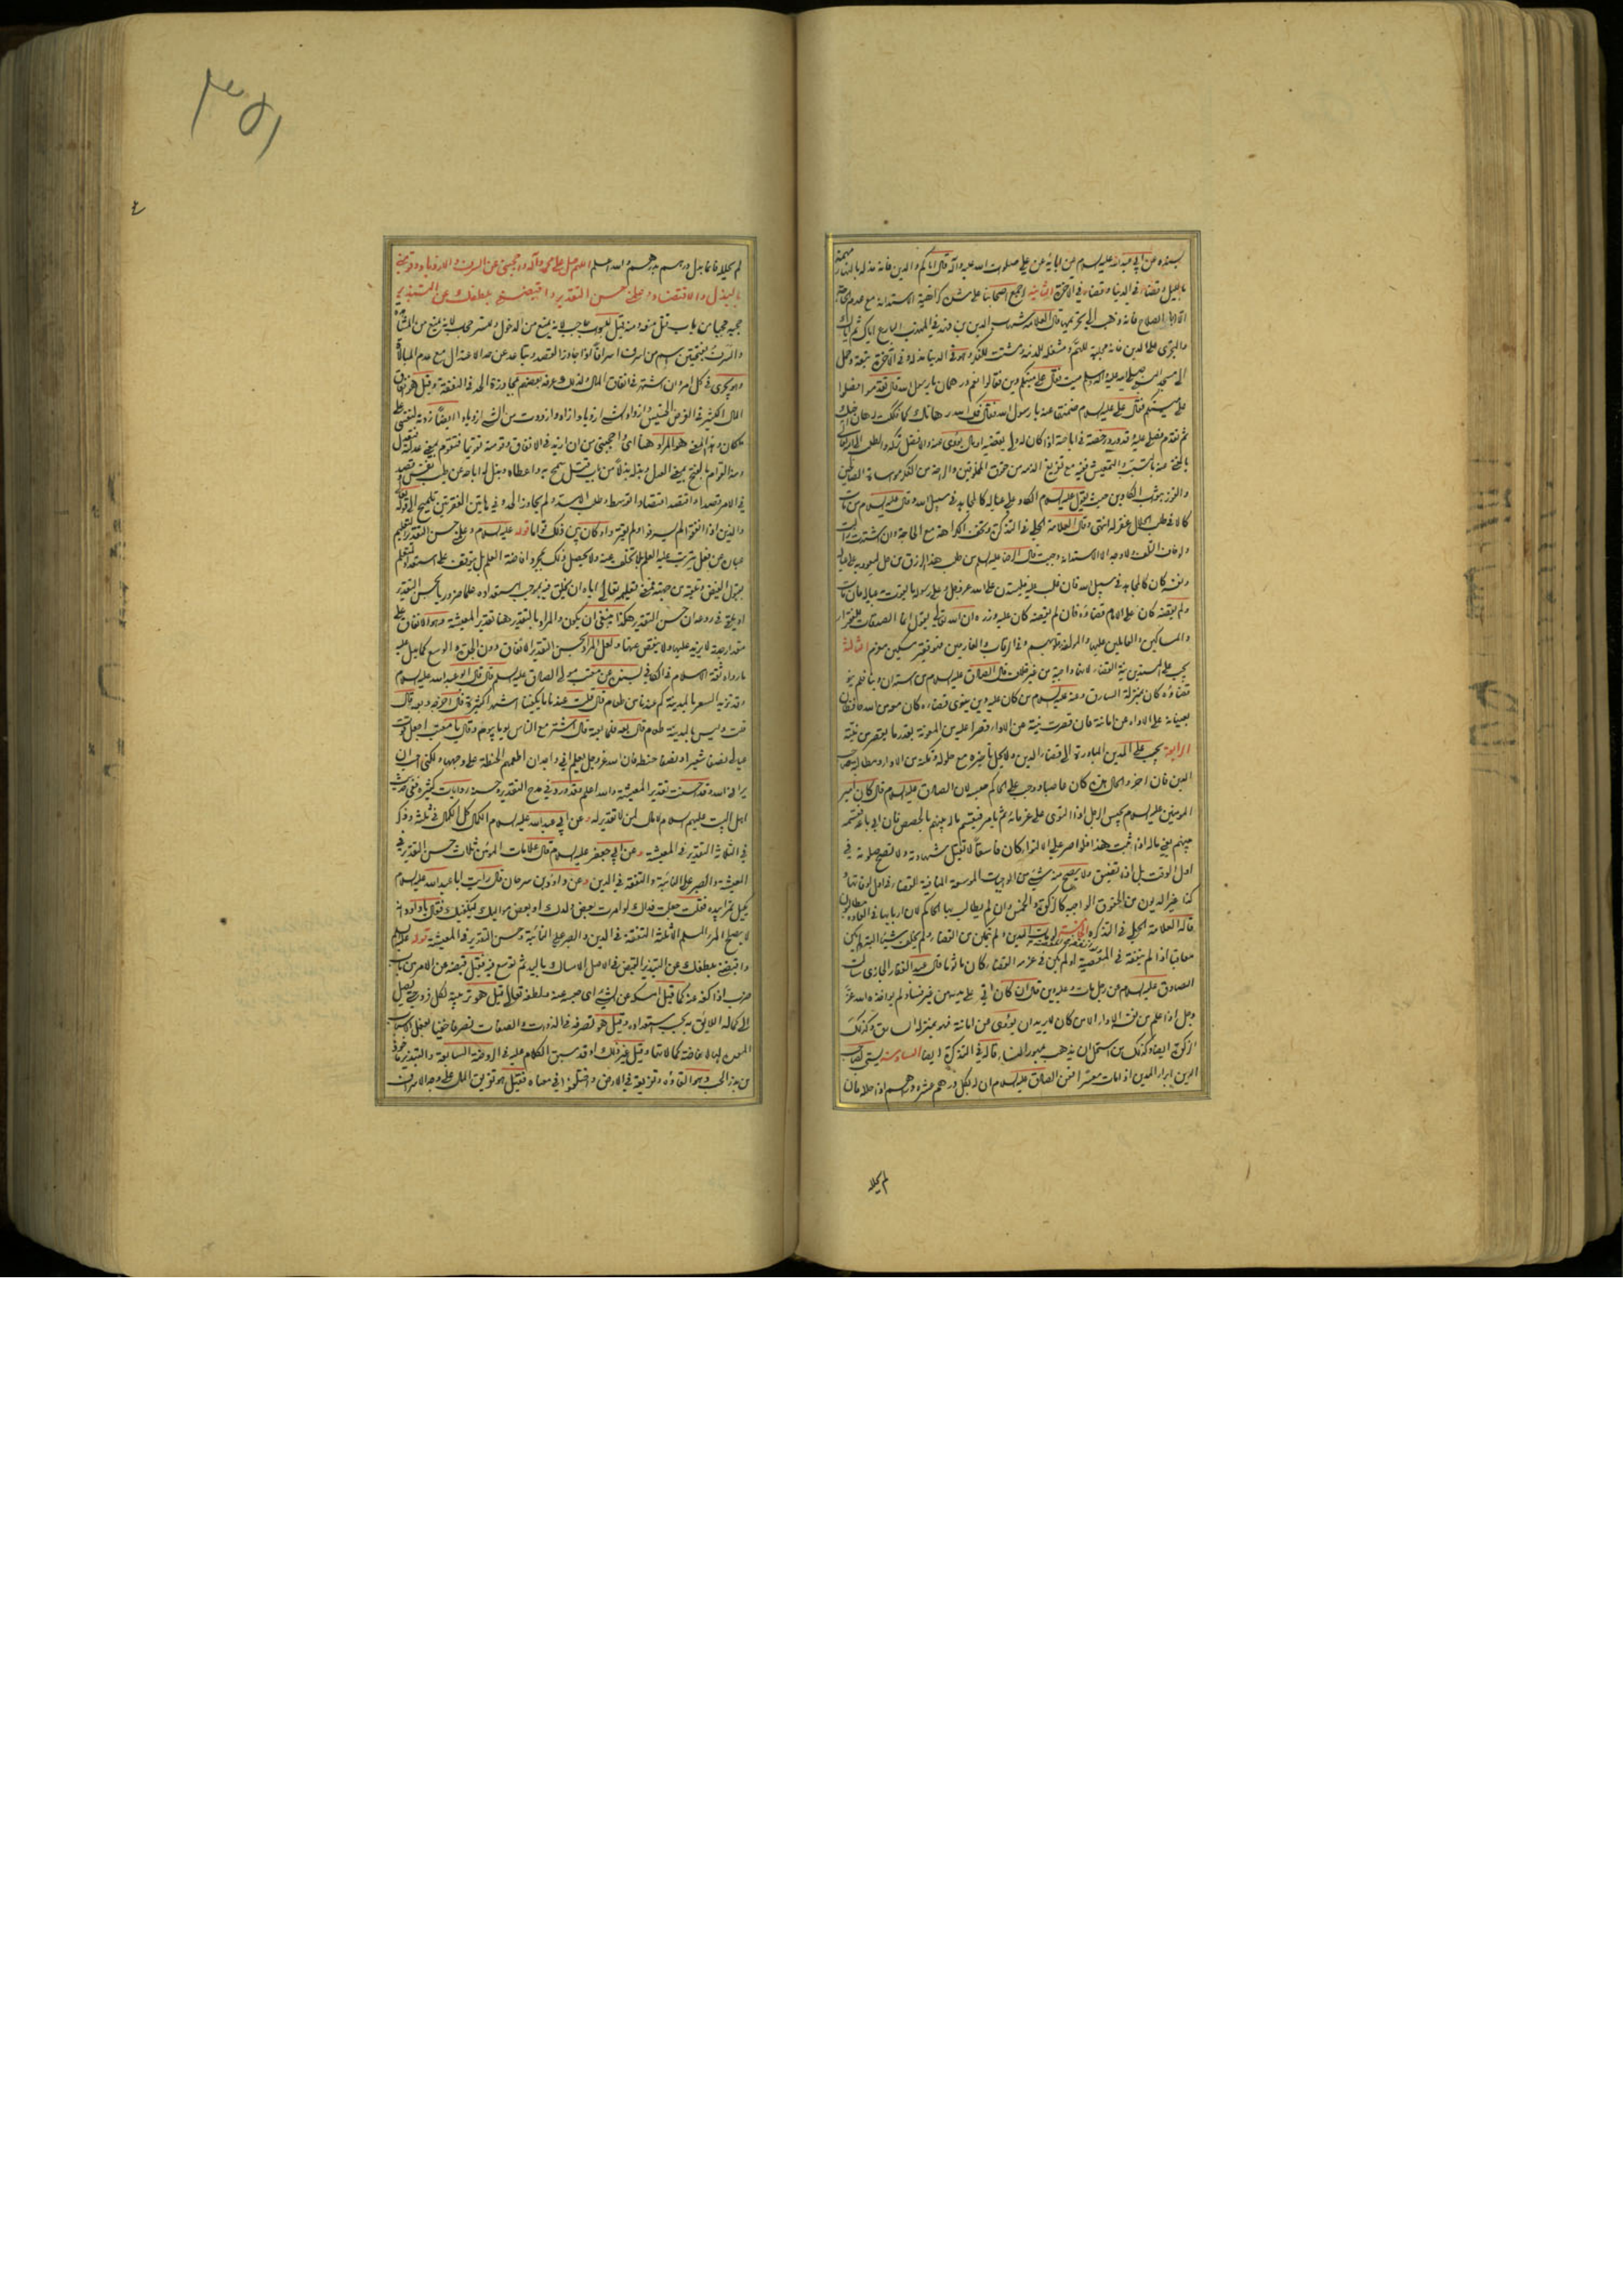 بسنده عن ابي عبد الله عليه السلام عن ابائه عن علي صلوات الله عليه واله قال اياكم والدين فانه مذلة بالنهار مهمة
بالليل وقضاء في الدنيا وقضاء في الاخرة الثانية اجمع اصحابنا على كراهية الاستدانة مع عدم الحاجة
الا ابا الصلاح فانه ذهب الى تحريمها قال العلامة الدين بن فهد في المهذب البارع اياك ثم اياك
والتجري على الدين فانه للهم ومشغلة للذمة ومشتت للفكر وهو في الدنيا مذلة وفي الاخرة تبعة وحمل
الى مسجد النبي صلى الله عليه واله وسلم ميت فقال على ميتكم دين فقالوا نعم درهمان يا رسول الله قال تقدموا فصلوا
على ميتكم فقال علي عليه السلام ضمنتها عنه يا رسول الله فقال فك الله رهانك كما فككت رهان اخيك
ثم تقدم فصلى عليه وقد ورد رخصة في اباحته اذا كان له ولي يقضيه او مال يؤدى عنه والافضل تركه
مع تفريغ الذمة من حقوق المخلوقين والراحة من الفكر ومساواة الصالحين
والفوز بثواب الكادين حيث يقول عليه السلام الكاد على عياله كالمجاهد في سبيل الله وقال عليه السلام من بات
كالا في طلب الحلال غفر له انتهى وقال العلامة الحلي في التذكرة وتخف الكراهة مع الحاجة وان اشتدت زالت
ولو خاف التلف ولا وجه الا الاستدانة وجبت قال الرضا عليه السلام من طلب هذا الرزق من حله ليعود به على عياله
ونفسه كان كالمجاهد في سبيل الله فان غلب عليه فليستدن على الله عز وجل وعلى رسوله ما يقوت به عياله فان مات
ولم يقضه كان على الامام قضاؤه فان لم يقضه كان عليه وزره ان الله تعالى يقول انما الصدقات للفقراء
والمساكين والعاملين عليها والمؤلفة قلوبهم وفي الرقاب والغارمين فهو فقير مسكين مغرم الثالثة
يجب على المستدين نية القضاء لانها واجبة من غير خلاف قال الصادق عليه السلام من استدان دينا فلم ينو
قضاؤه كان بمنزلة السارق وعنه عليه السلام من كان عليه دين ينوي قضاءه كان معه من الله حافظان
يعينانه على الاداء عن امانته فان قصرت نيته عن الاداء قصرا عليه من المعونة بقدر ما يقصر من نيته
الرابعة يجب على المدين المبادرة الى قضاء الدين ولا يحل تاخيره مع حلوله وتمكنه من الاداء ومطالبة صاحب
الدين فان اخر والحال هذه كان عاصيا ووجب على الحاكم حبسه لان الصادق عليه السلام قال كان امير
المؤمنين عليه السلام يحبس الرجل اذا التوى على غرمائه ثم يامر فيقسم ماله بينهم بالحصص فان ابى باعه فقسمه
بينهم يعني ماله اذا ثبت هذا فلو اصر على الالتواء كان فاسقا لا تقبل شهادته ولا تصح صلوته في
اول الوقت بل اذا تضيق ولا يصح منه شيء من الواجبات الموسعة المنافية للقضاء في اول اوقاتها و
كذا غير الديون من الحقوق الواجبة كالزكوة والخمس وان لم يطالب بها الحاكم لان اربابها في العادة مطالبون
قاله العلامة الحلي في التذكرة الخامسة لو مات المدين ولم يتمكن من القضاء ولم يخلف شيئا البتة لم يكن
معاقبا اذا لم ينفقه في المعصية ولو لم يكن في عزمه القضاء كان ماثوما قال عبد الغفار الجازي سالت
الصادق عليه السلام عن رجل مات وعليه دين قال ان كان اتى على يديه من غير فساد لم يؤاخذه الله عز
وجل اذا علم من نيته الاداء الا من كان لا يريد ان يؤدى عن امانته فهو بمنزلة السارق وكذلك
الزكوة ايضا وكذلك من استحل ان يذهب بمهور النساء قاله في التذكرة ايضا السادسة يستحب لصاحب
الدين ابراء المدين اذا مات معسرا فعن الصادق عليه السلام ان له بكل درهم عشرة دراهم اذا حلله فان
لم يحلله
٣٥١
لم يحلله فانما بدل درهم بدرهم والله اعلم اللهم صل على محمد وآله واحجبني عن السرف والازدياد وقومني
بالبذل والاقتصاد وعلمني حسن التقدير واقبضني بلطفك عن التبذير
حجبه حجبا من باب قتل منعه ومنه قيل للبواب حاجب لانه يمنع من الدخول وللستر حجاب لانه يمنع من المشاهدة
والسرف بفتحتين اسم من اسرف اسرافا اذا جاوز القصد وتباعد عن حد الاعتدال مع عدم المبالاة
وهو يجري في كل امر وان اشتهر في انفاق المال ولذلك عرفه بعضهم بمجاوزة الحد في النفقة وقيل هو انفاق
المال الكثير في الغرض الخسيس وازداد الشيء ازديادا زاد وازددت من الشيء ازديادا ايضا
وهذا المعنى هو المراد هنا اي احجبني من ان ازيد في الانفاق وقومته تقويما فتقوم بمعنى عدلته فتعدل
ومنه القوام بالفتح بمعنى العدل وبذله بذلا من باب قتل سمح به واعطاه وبذله اباحه عن طيب نفس وقصد
في الامر قصدا واقتصد اقتصادا توسط وطلب الاسد ولم يجاوز الحد وفي هاتين الفقرتين تلميح الى قوله تعالى
والذين اذا انفقوا لم يسرفوا ولم يقتروا وكان بين ذلك قواما قوله عليه السلام وعلمني حسن التقدير التعليم
عبارة عن فعل يترتب عليه العلم ولا يحصل ذلك بمجرد افاضة المعلم بل يتوقف على استعداد المتعلم
لقبول الفيض
حسن التقدير هكذا ينبغي ان يكون والمراد بالتقدير هنا تقدير المعيشة وهو الانفاق على
ولعل المراد بحسن التقدير الانفاق دون
ما رواه ثقة الاسلام في الكافي بسنده عن معتب مولى الصادق عليه السلم قال قال ابو عبد الله عليه السلام
وقد تزيد السعر بالمدينة كم عندنا من طعام قال قلت عندنا ما يكفينا اشهرا كثيرة قال اخرجه وبعه قال
قلت وليس بالمدينة طعام قال بعه فلما بعته قال اشتر مع الناس يوما بيوم وقال يا معتب اجعل قوت
عيالي نصفا شعيرا ونصفا حنطة فان الله عز وجل يعلم اني واجد ان اطعمهم الحنطة على وجهها ولكني احب ان
يراني الله وقد احسنت تقدير المعيشة والله اعلم وقد ورد في مدح التقدير وحسنه روايات كثيرة ففي حديث
اهل البيت عليهم السلام لا مال لمن لا تقدير له وعن ابي عبد الله عليه السلام الكمال كل الكمال في ثلثة وذكر
في الثلاثة التقدير في المعيشة وعن ابي جعفر عليه السلام قال علامات المؤمن ثلاث حسن التقدير في
المعيشة والصبر على النائبة والتفقه في الدين وعن داود بن سرحان قال رايت ابا عبد الله عليه السلام
يكيل تمرا بيده فقلت جعلت فداك لو امرت بعض ولدك او بعض مواليك فيكفيك فقال يا داود انه
لا يصلح المرء المسلم الا ثلثة التفقه في الدين والصبر على النائبة وحسن التقدير في المعيشة قوله عليه السلم
واقبضني بلطفك عن التبذير القبض في الاصل الامساك باليد ثم توسع فيه فقيل قبضه عن الامر من باب
ضرب اذا كفه عنه كما قيل امسكه عن الشيء اي حبسه عنه ولطفه تعالى قيل هو تربيته لكل فرد حتى يصل
الى كماله اللائق به بحسب استعداده وقيل هو تصرفه في الذوات والصفات تصرفا خفيا بفعل الاسباب
المعدة لها لافاضة كمالاتها وقيل غير ذلك وقد سبق الكلام عليه في الروضة السابعة والتبذير ماخوذ
من بذر الحب وهو القاؤه وتفريقه في الارض واختلفوا في معناه فقيل هو تفريق المال على وجه الاسراف